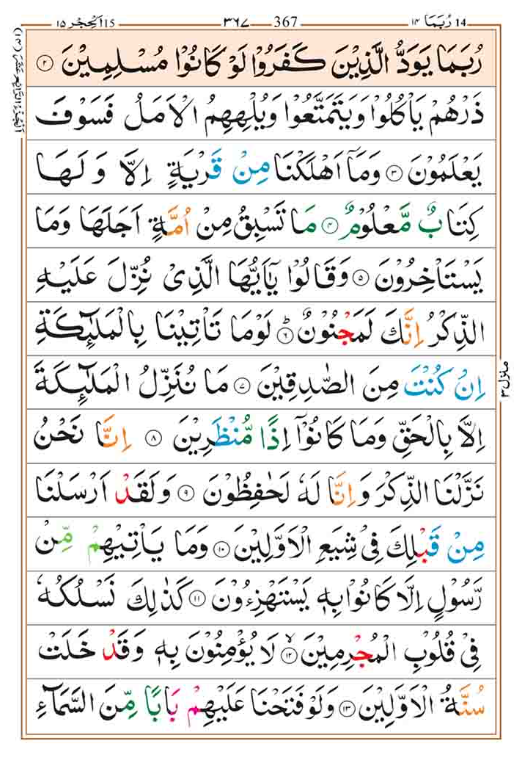 14 رُبَمَا ١٤ 367 ٣٦٧ 15 اَلْحِجْر ١٥
رُبَمَا يَوَدُّ الَّذِيْنَ كَفَرُوْا لَوْ كَانُوْا مُسْلِمِيْنَ ۝٢
ذَرْهُمْ يَاْكُلُوْا وَيَتَمَتَّعُوْا وَيُلْهِهِمُ الْاَمَلُ فَسَوْفَ
يَعْلَمُوْنَ ۝٣ وَمَاۤ اَهْلَكْنَا مِنْ قَرْيَةٍ اِلَّا وَ لَهَا
كِتَابٌ مَّعْلُوْمٌ ۝٤ مَا تَسْبِقُ مِنْ اُمَّةٍ اَجَلَهَا وَمَا
يَسْتَاْخِرُوْنَ ۝٥ وَقَالُوْا يٰۤاَيُّهَا الَّذِىْ نُزِّلَ عَلَيْهِ
الذِّكْرُ اِنَّكَ لَمَجْنُوْنٌ ۝٦ؕ لَوْمَا تَاْتِيْنَا بِالْمَلٰٓئِكَةِ
اِنْ كُنْتَ مِنَ الصّٰدِقِيْنَ ۝٧ مَا نُنَزِّلُ الْمَلٰٓئِكَةَ
اِلَّا بِالْحَقِّ وَمَا كَانُوْۤا اِذًا مُّنْظَرِيْنَ ۝٨ اِنَّا نَحْنُ
نَزَّلْنَا الذِّكْرَ وَ اِنَّا لَهٗ لَحٰفِظُوْنَ ۝٩ وَلَقَدْ اَرْسَلْنَا
مِنْ قَبْلِكَ فِىْ شِيَعِ الْاَوَّلِيْنَ ۝١٠ وَمَا يَاْتِيْهِمْ مِّنْ
رَّسُوْلٍ اِلَّا كَانُوْا بِهٖ يَسْتَهْزِءُوْنَ ۝١١ كَذٰلِكَ نَسْلُكُهٗ
فِىْ قُلُوْبِ الْمُجْرِمِيْنَ ۝١٢ۙ لَا يُؤْمِنُوْنَ بِهٖ وَقَدْ خَلَتْ
سُنَّةُ الْاَوَّلِيْنَ ۝١٣ وَلَوْ فَتَحْنَا عَلَيْهِمْ بَابًا مِّنَ السَّمَآءِ
منزل ٣